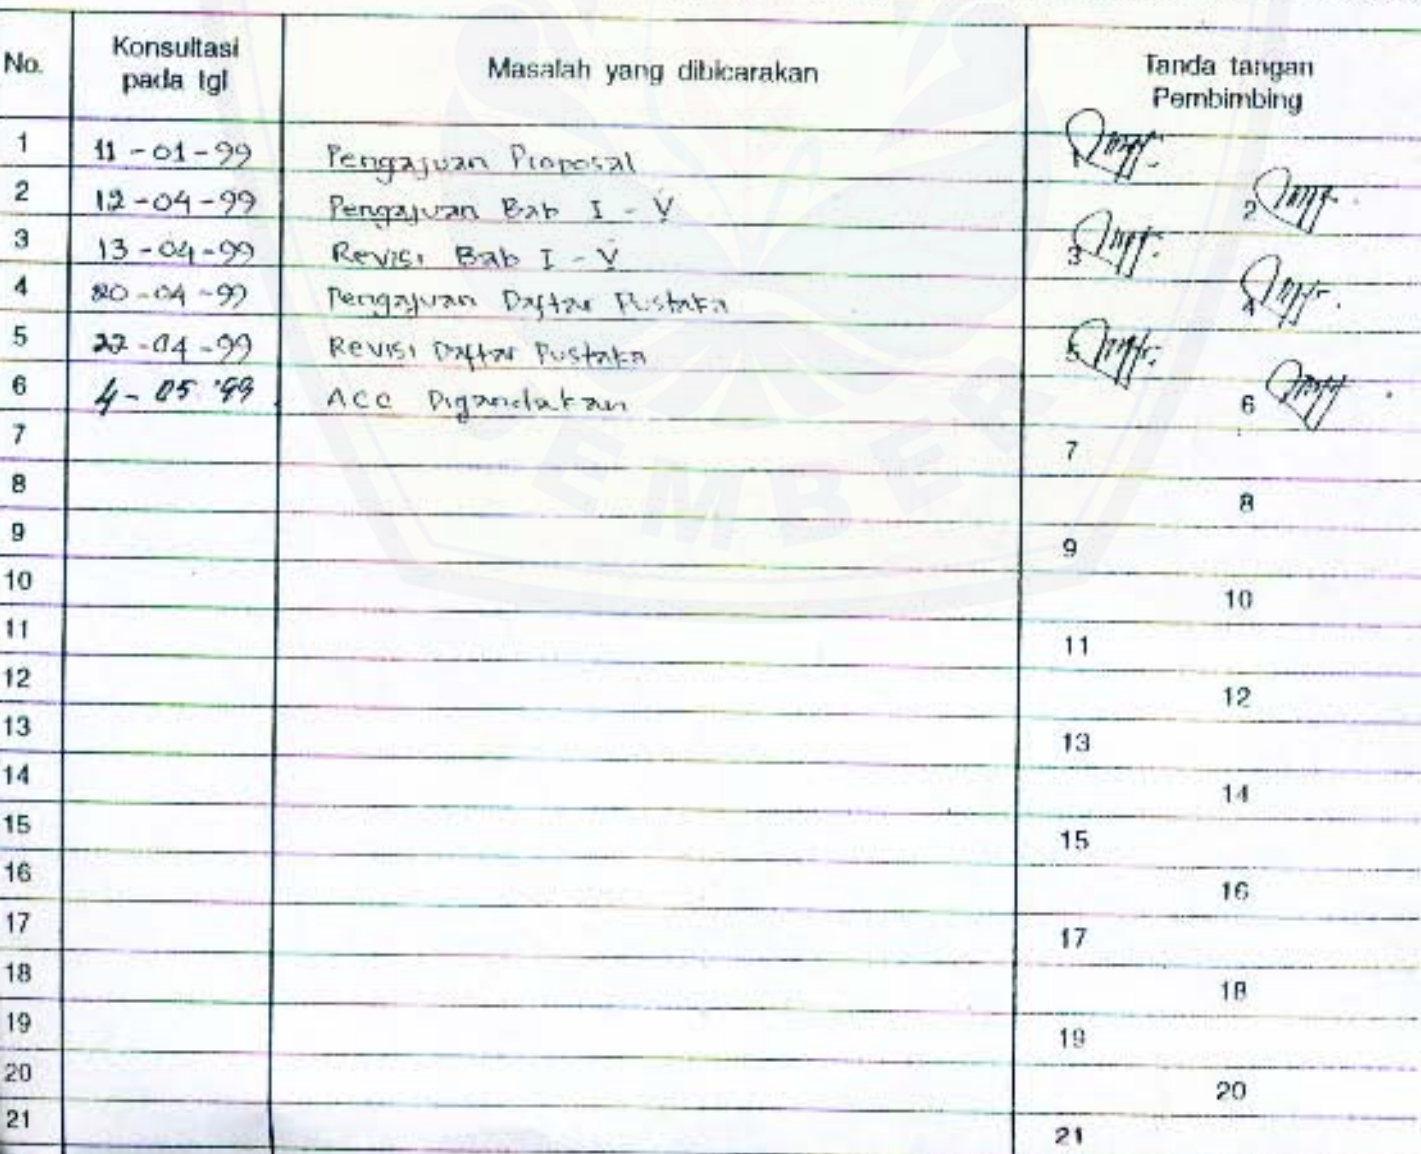 No. Konsultasi pada tgl Masalah yang dibicarakan Tanda tangan Pembimbing
1 11-01-99 Pengajuan Proposal 1
2 12-04-99 Pengajuan Bab I - V 2
3 13-04-99 Revisi Bab I - V 3
4 20-04-99 Pengajuan Daftar Pustaka 4
5 22-04-99 Revisi Daftar Pustaka 5
6 4-05-'99 Acc Digandakan 6
7 7
8 8
9 9
10 10
11 11
12 12
13 13
14 14
15 15
16 16
17 17
18 18
19 19
20 20
21 21
JEMBER